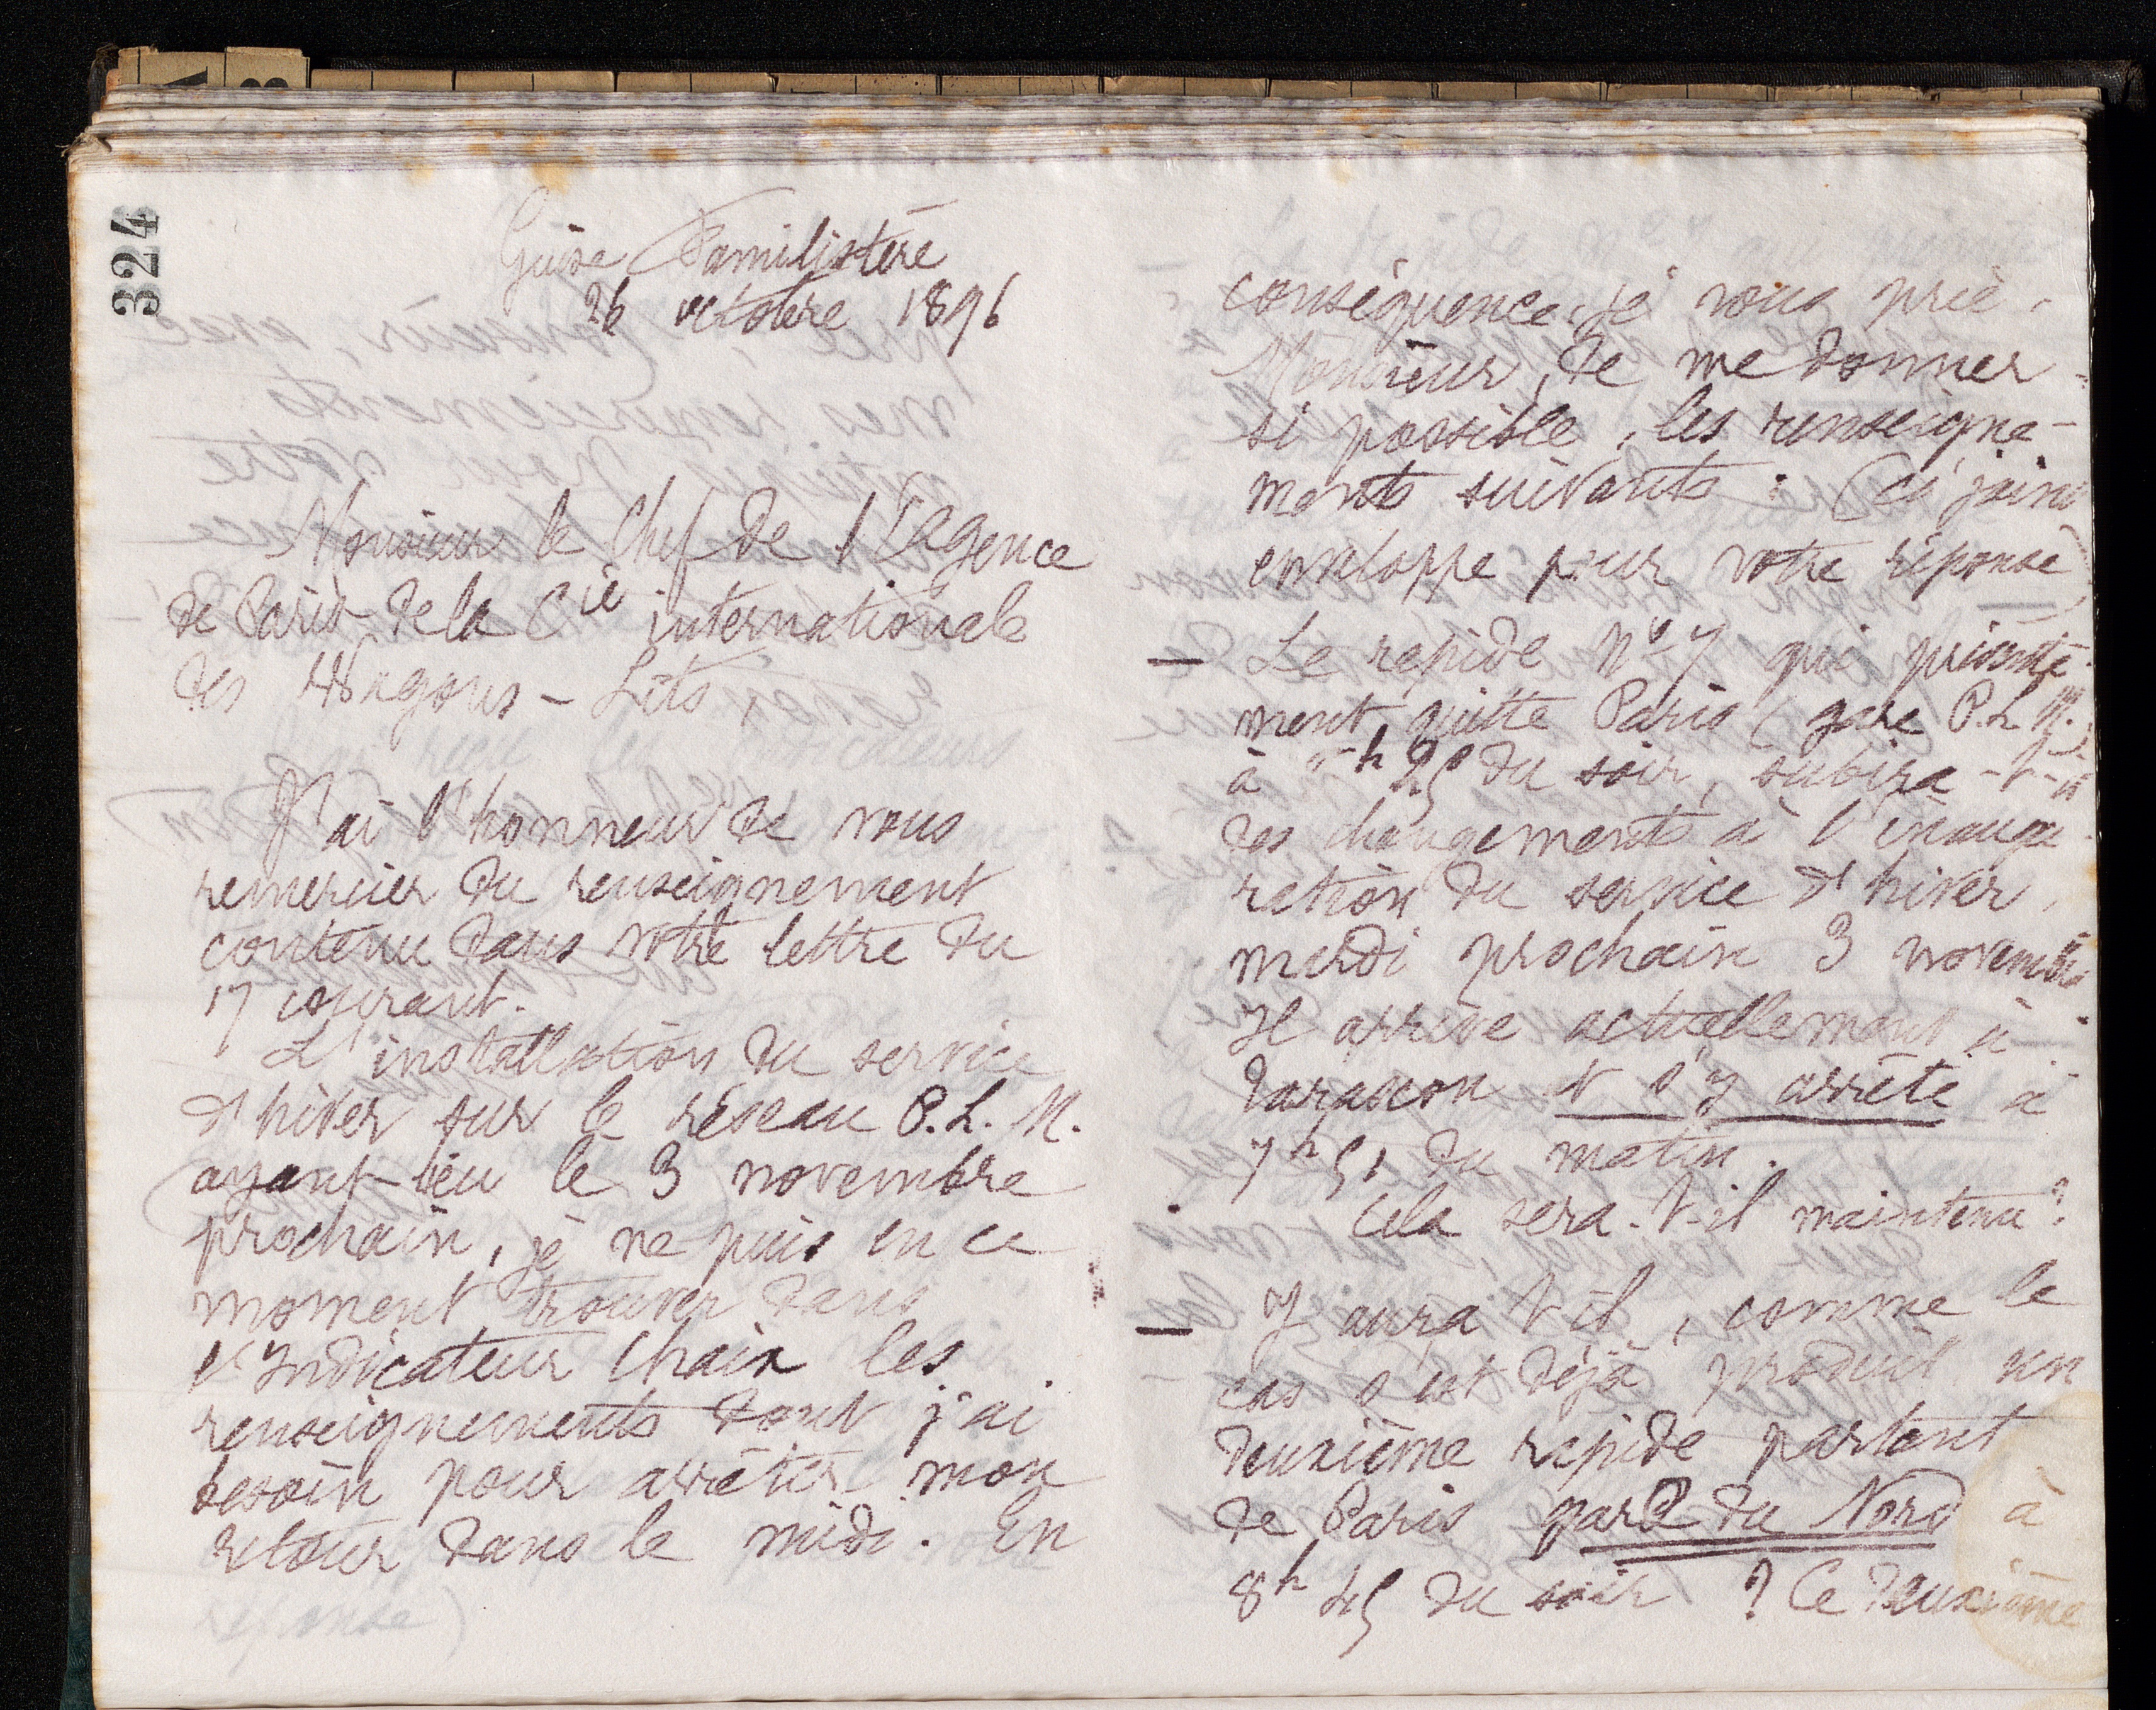 324
Guise Familistère
26 octobre 1896
Monsieur le Chef de l'Agence
de Paris de la Cie internationale
des Wagons-Lits,
J'ai l'honneur de vous
remercier du renseignement
contenu dans votre lettre du
17 courant.
L'installation du service
d'hiver sur le réseau P.L.M.
ayant lieu le 3 novembre
prochain, je ne puis en ce
moment trouver dans
l'Indicateur Chaix les
renseignements dont j'ai
besoin pour arrêter mon
retour dans le midi. En
conséquence, je vous prie,
Monsieur, de me donner
si possible, les renseigne-
ments suivants : (ci joint
enveloppe pour votre réponse)
— Le rapide No 7 qui présente-
ment quitte Paris (gare P.L.M.)
à h 25 du soir, subira-t-il
des changements à l'inaugu
ration du service d'hiver,
mardi prochain 3 novembre
Il arrive actuellement à
Tarascon et s'y arrête à
7h 51 du matin.
Cela sera-t-il maintenu?
— Y aura t il, comme le
cas s'est déjà produit un
deuxième rapide partant
de Paris gare du Nord à
8h 45 du soir ? Ce deuxième